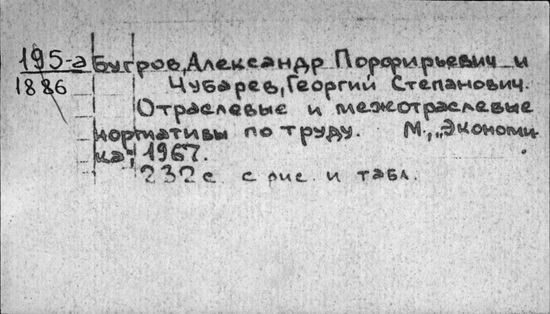 195-а Бугров, Александр Порфирьевич и
1886 Чубарев, Георгий Степанович.
Отраслевые и межотраслевые
нормативы по труду. М., „Экономи-
ка“, 1967.
232 с. с рис. и табл.